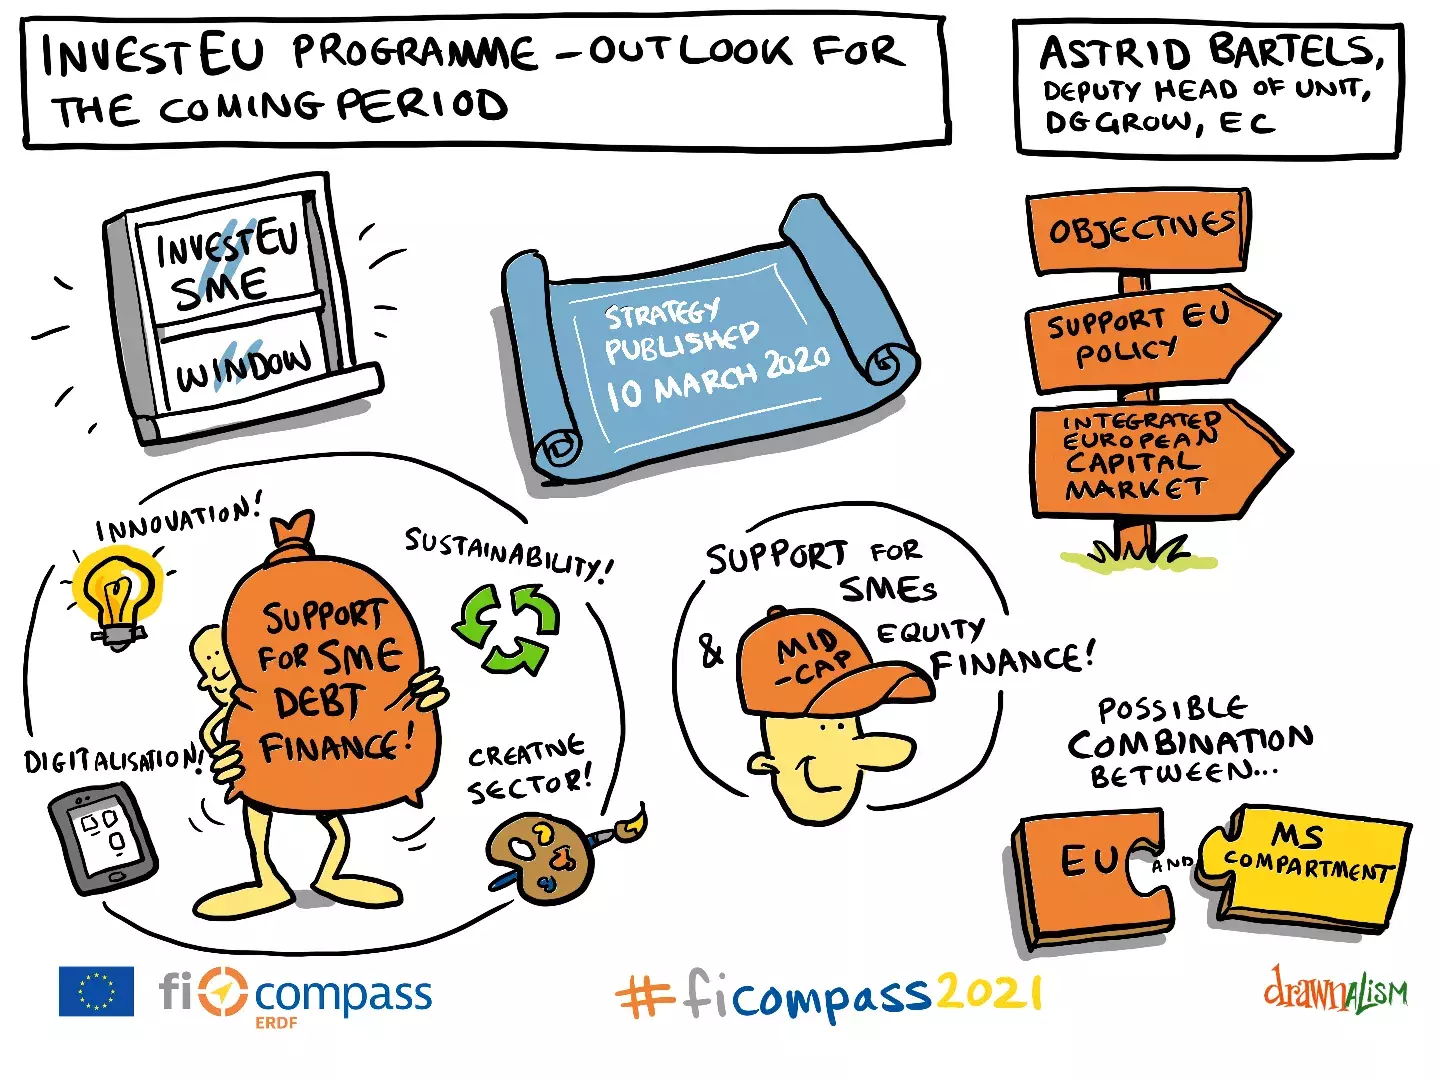 INVESTEU PROGRAMME – OUTLOOK FOR
THE COMING PERIOD
ASTRID BARTELS,
DEPUTY HEAD OF UNIT,
DG GROW, EC
INVESTEU
SME
WINDOW
STRATEGY
PUBLISHED
10 MARCH 2020
OBJECTIVES
SUPPORT EU
POLICY
INTEGRATED
EUROPEAN
CAPITAL
MARKET
INNOVATION!
SUSTAINABILITY!
SUPPORT
FOR SME
DEBT
FINANCE!
DIGITALISATION!
CREATIVE
SECTOR!
SUPPORT FOR
SMEs
& MID
-CAP
EQUITY
FINANCE!
POSSIBLE
COMBINATION
BETWEEN...
EU
AND
MS
COMPARTMENT
fi compass
ERDF
#ficompass2021
drawnalism